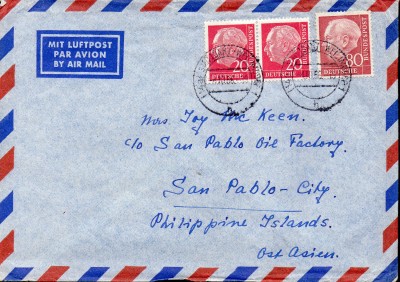 MIT LUFTPOST
PAR AVION
BY AIR MAIL
20
DEUTSCHE
BUNDESPOST
20
DEUTSCHE
BUNDESPOST
80
DEUTSCHE
BUNDESPOST
Mrs. Joy Mc Keen.
c/o San Pablo Oil Factory.
San Pablo-City.
Philippine Islands.
Ost Asien.